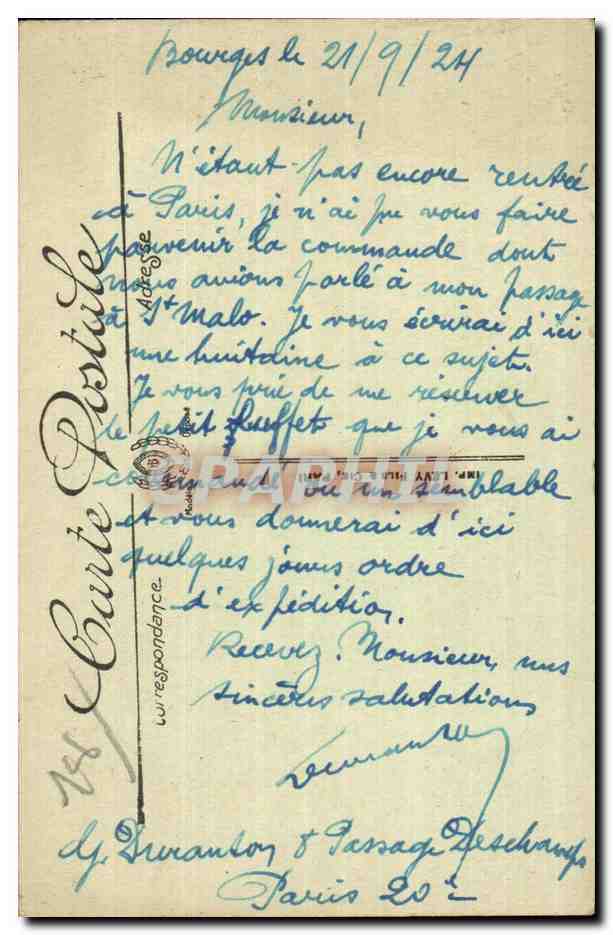 Bourges le 21/9/24
Monsieur,
N'étant pas encore rentré
à Paris, je n'ai pu vous faire
parvenir la commande dont
nous avions parlé à mon passage
à St Malo. Je vous écrirai d'ici
une huitaine à ce sujet.
Je vous prie de me réserver
le petit buffet que je vous ai
commandé ou un semblable
et vous donnerai d'ici
quelques jours ordre
d'expédition.
Recevez, Monsieur, mes
sincères salutations
Duranton
G. Duranton 8 Passage Deschamps
Paris 20è
Carte Postale
Adresse
Correspondance
IMP. LÉVY FILS & CIE, PARIS
CPAPHIL